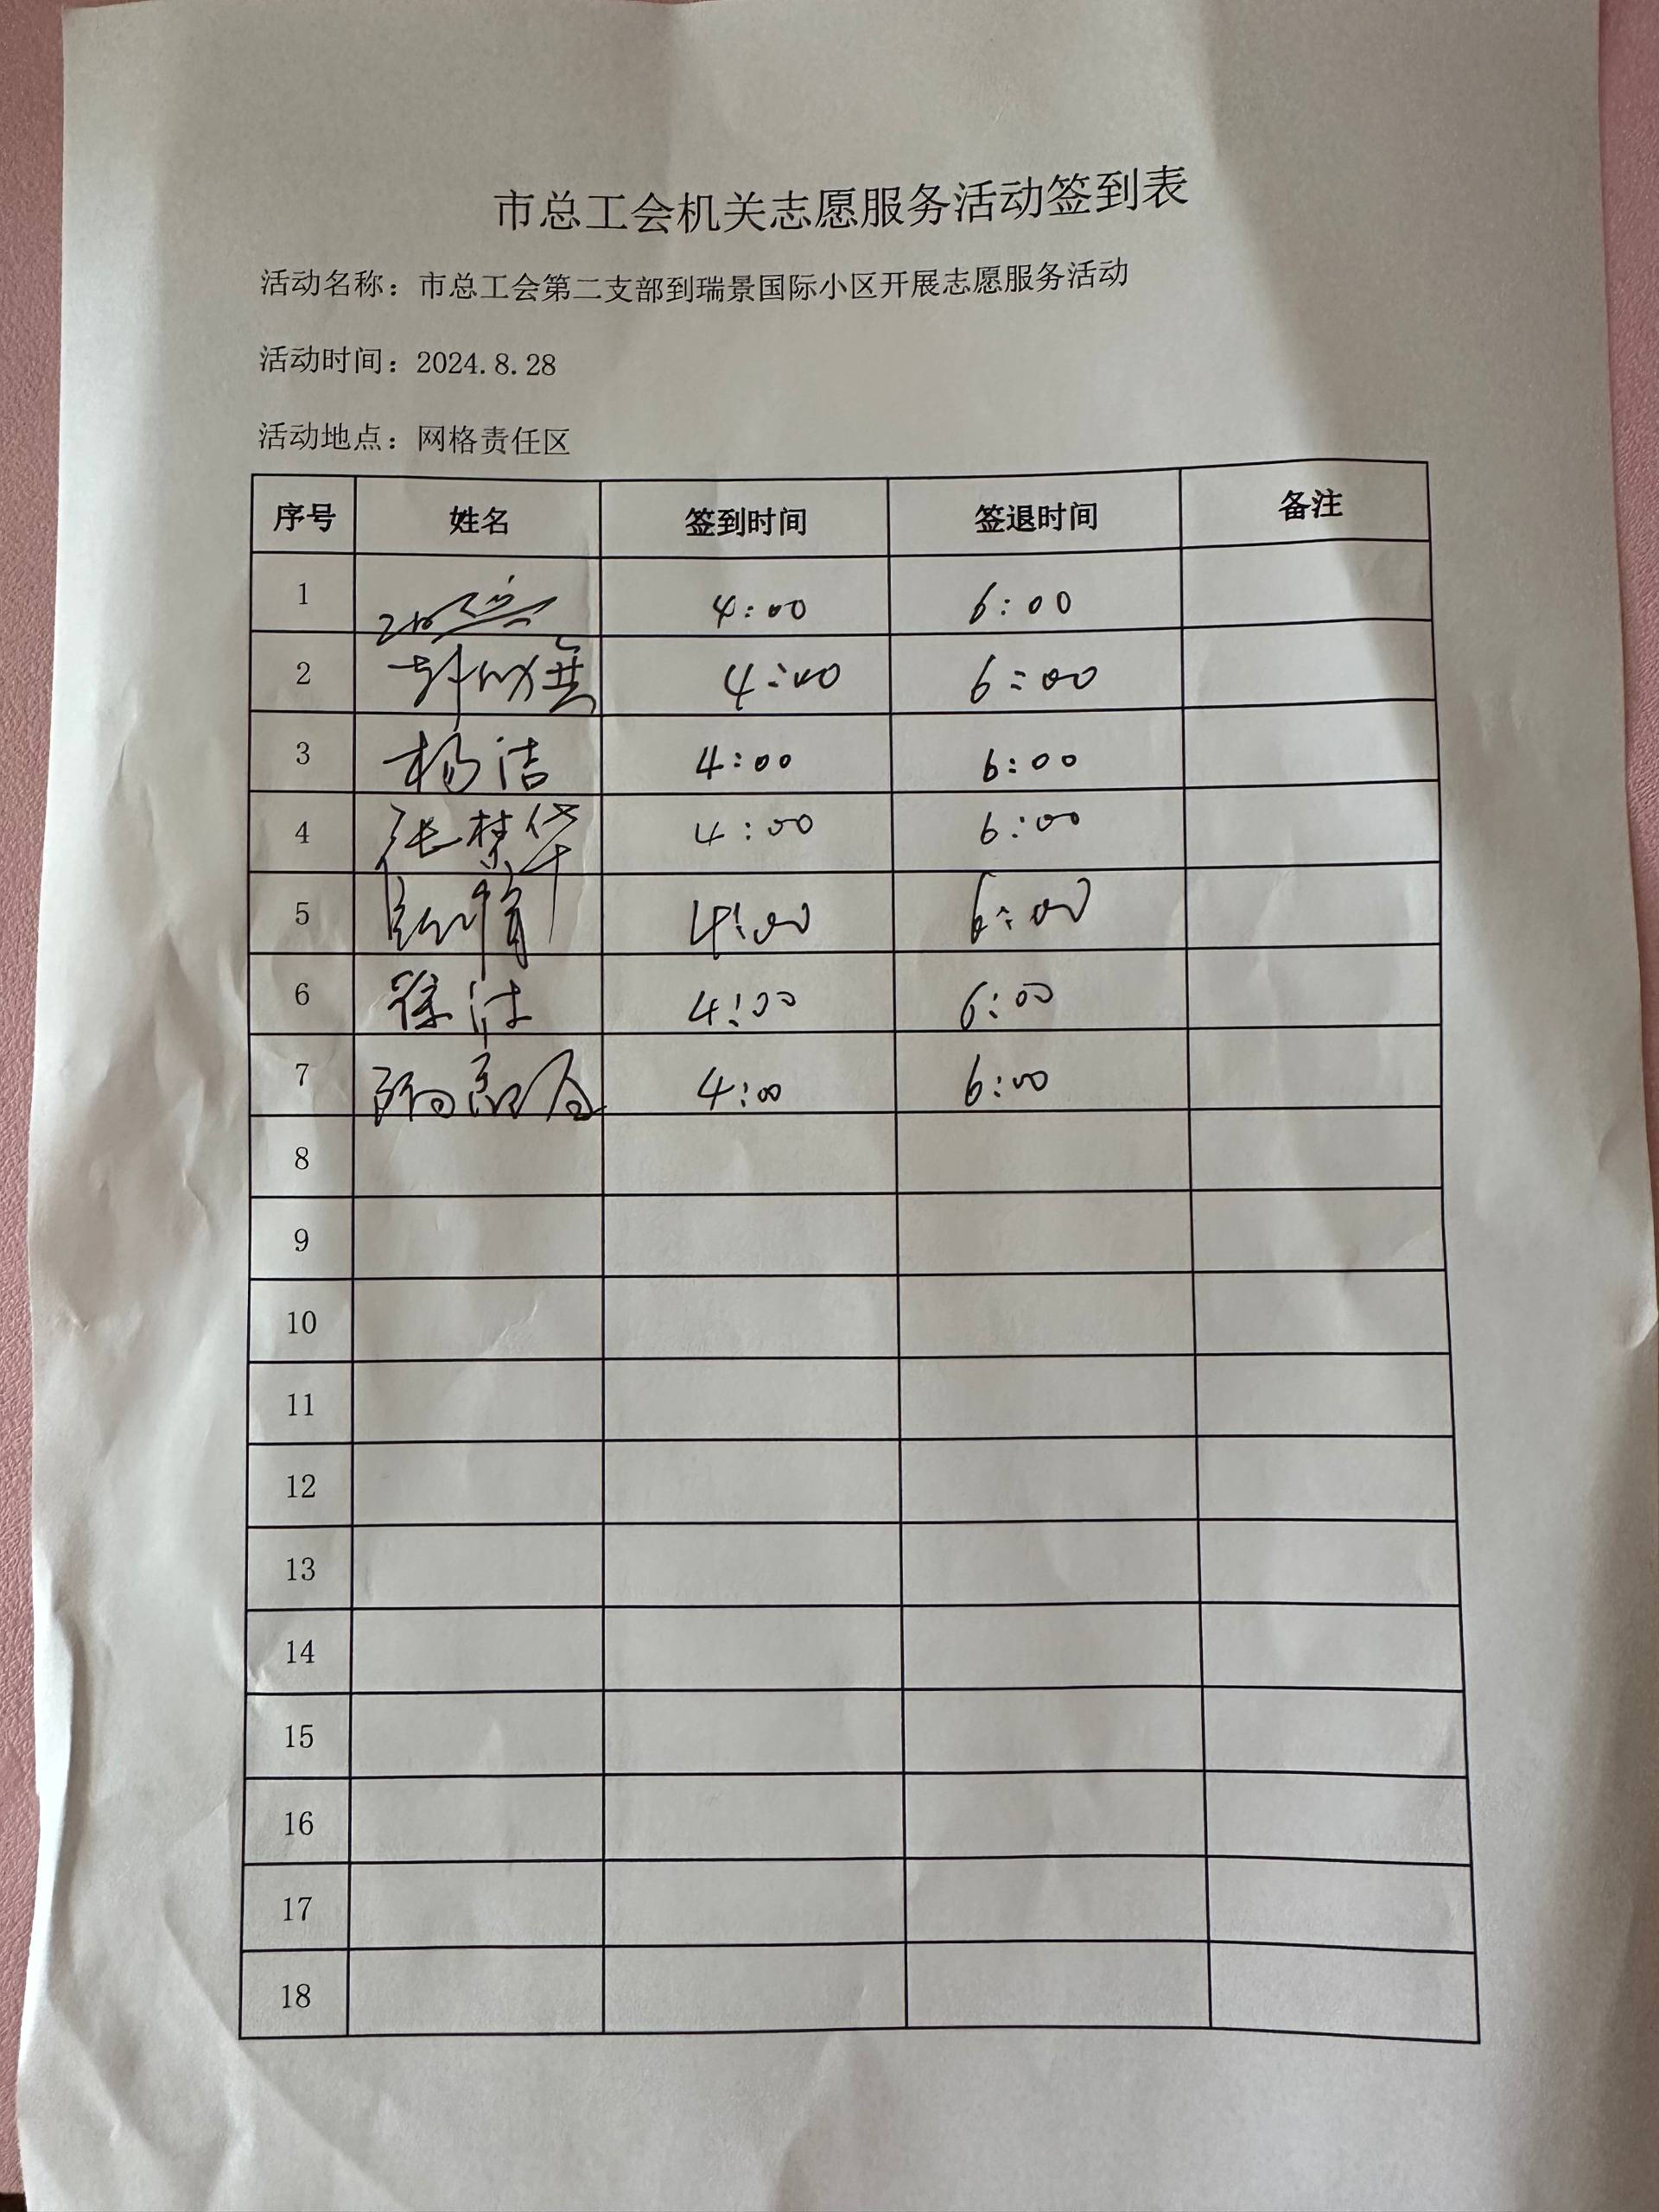 市总工会机关志愿服务活动签到表
活动名称：市总工会第二支部到瑞景国际小区开展志愿服务活动
活动时间：2024.8.28
活动地点：网格责任区
序号 姓名 签到时间 签退时间 备注
1 4:00 6:00
2 4:00 6:00
3 杨洁 4:00 6:00
4 张楚华 4:00 6:00
5 4:00 6:00
6 4:00 6:00
7 4:00 6:00
8
9
10
11
12
13
14
15
16
17
18